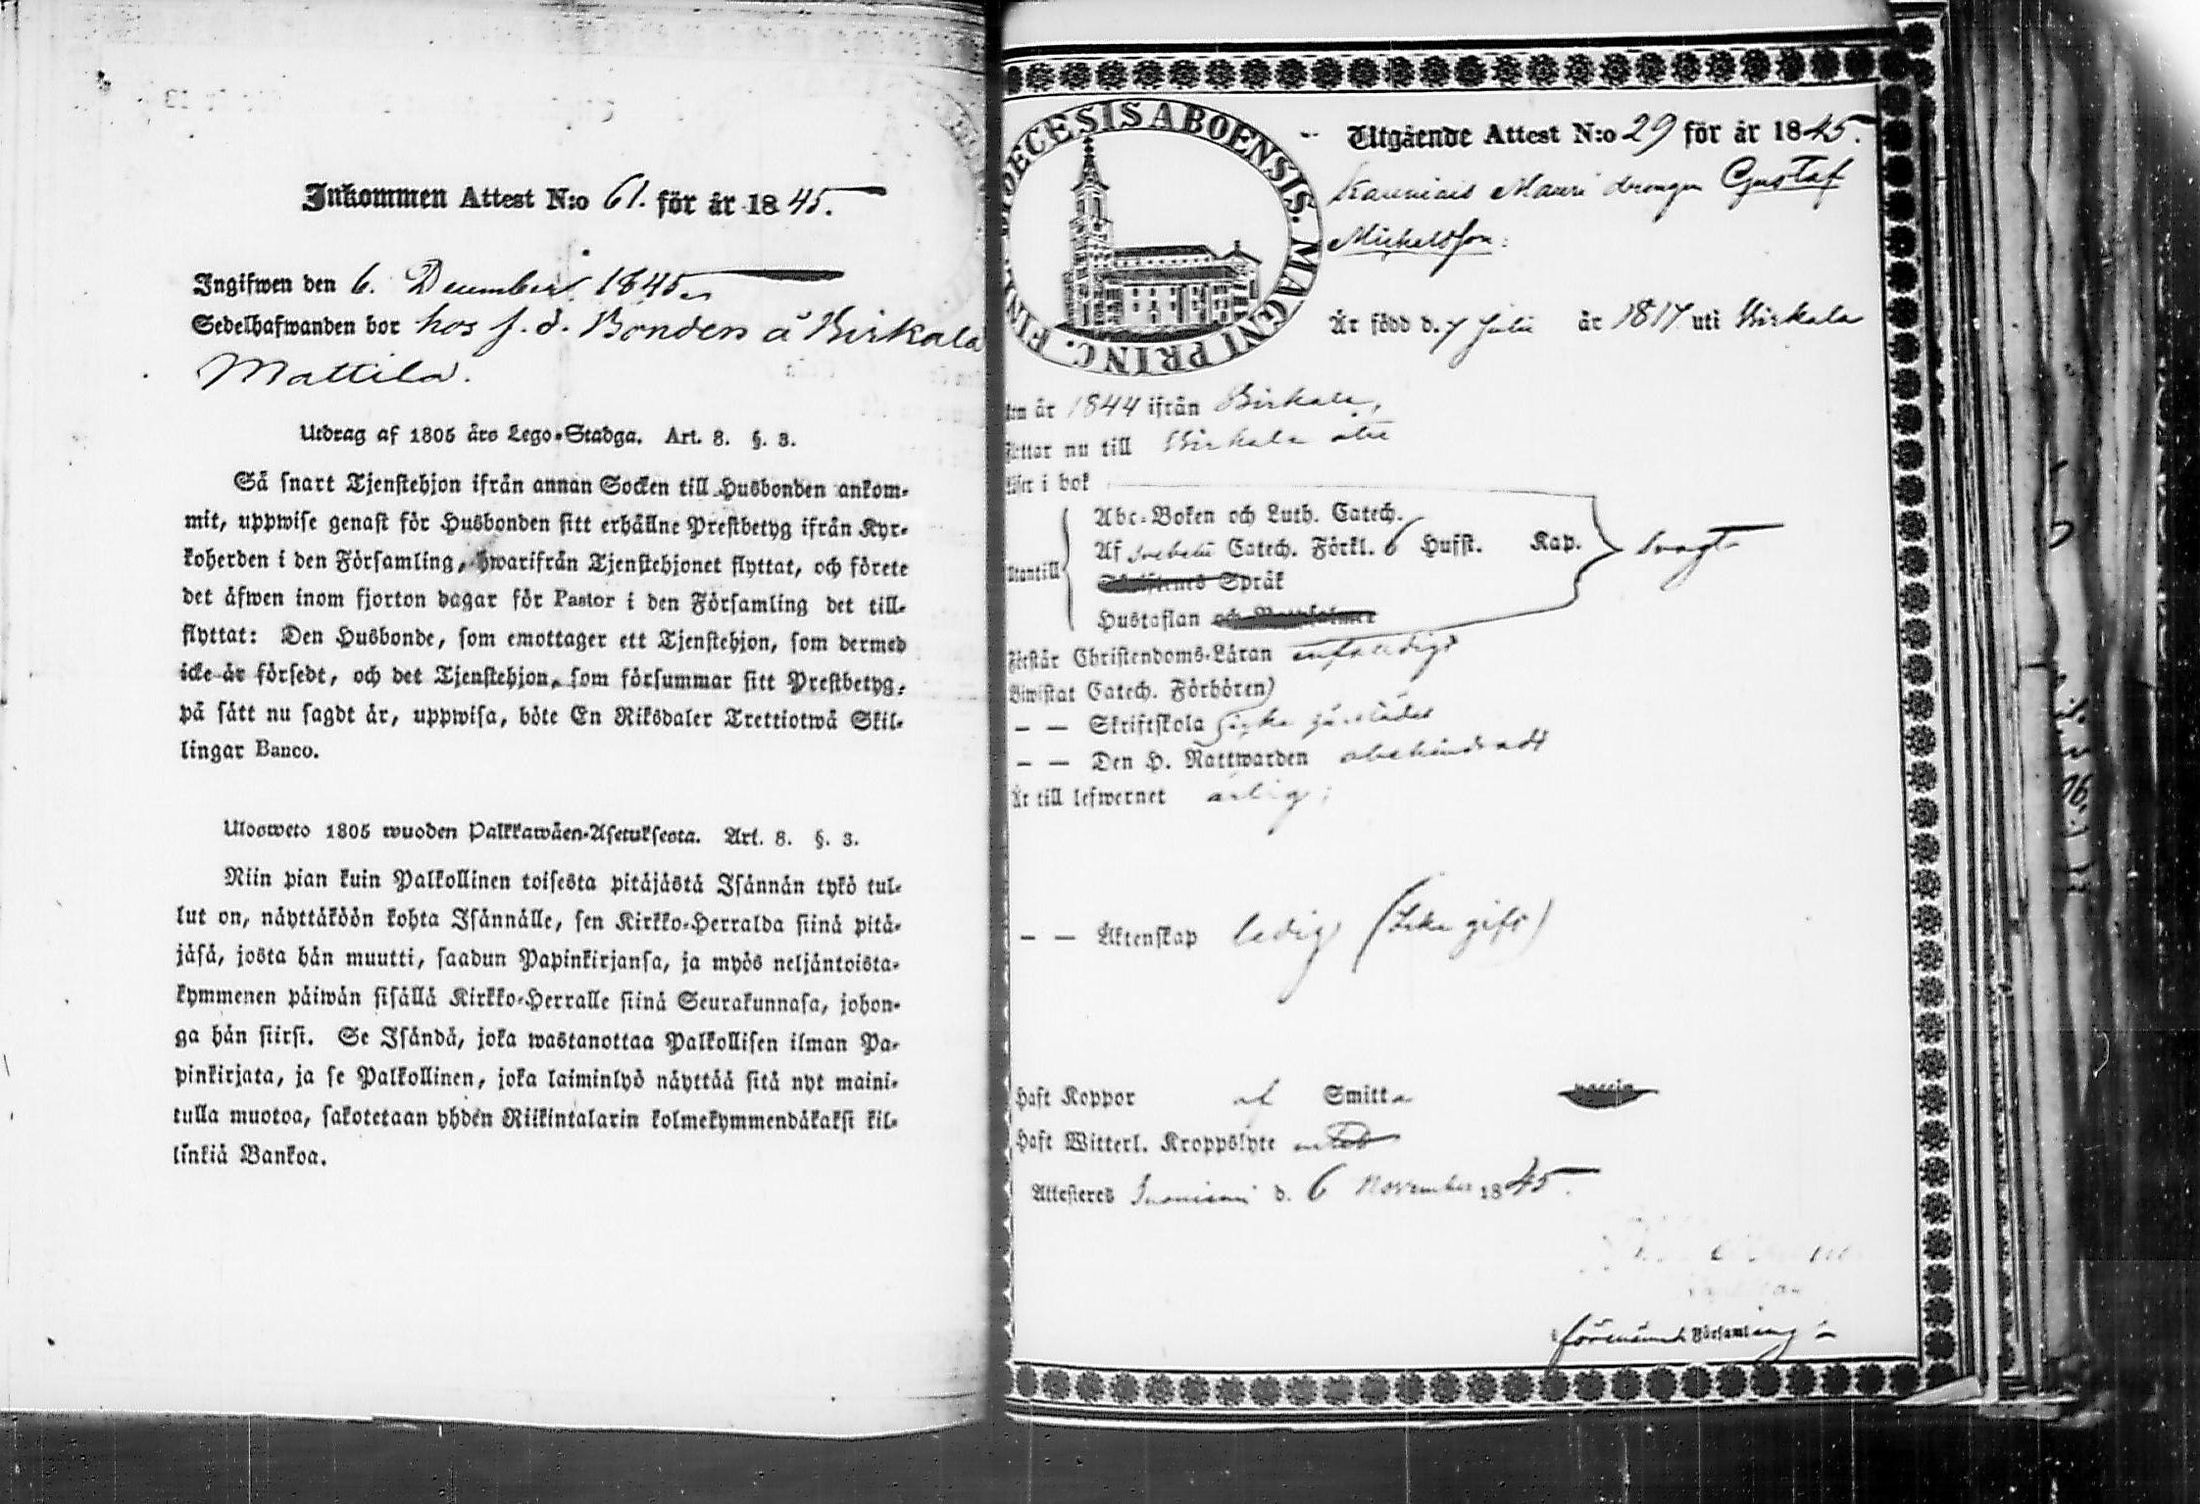 Inkommen Attest N:o 61. för år 1845.
Ingifwen den 6. December 1845.
Sedelhafwanden bor hos f. d. Bonden å Birkala
Mattila.
Utdrag af 1805 års Lego-Stadga. Art. 8. §. 3.
Så snart Tjenstehjon ifrån annan Socken till Husbonden ankom-
mit, uppwise genast för Husbonden sitt erhållne Prestbetyg ifrån Kyr-
koherden i den Församling, hwarifrån Tjenstehjonet flyttat, och förete
det äfwen inom fjorton dagar för Pastor i den Församling det till-
flyttat: Den Husbonde, som emottager ett Tjenstehjon, som dermed
icke är försedt, och det Tjenstehjon, som försummar sitt Prestbetyg,
på sätt nu sagdt är, uppwisa, böte En Riksdaler Trettiotwå Skil-
lingar Banco.
Ulosweto 1805 wuoden Palkkawäen-Asetuksesta. Art. 8. §. 3.
Niin pian kuin Palkollinen toisesta pitäjästä Isännän tykö tul-
lut on, näyttäköön kohta Isännälle, sen Kirkko-Herralda siinä pitä-
jäsä, josta hän muutti, saadun Papinkirjansa, ja myös neljäntoista-
kymmenen päiwän sisällä Kirkko-Herralle siinä Seurakunnasa, johon-
ga hän siirsi. Se Isändä, joka wastanottaa Palkollisen ilman Pa-
pinkirjata, ja se Palkollinen, joka laiminlyö näyttää sitä nyt maini-
tulla muotoa, sakotetaan yhden Riikintalarin kolmekymmendäkaksi kil-
linkiä Bankoa.
DIOECESIS ABOENSIS. MAGNI PRINC. FINL.
Utgående Attest N:o 29 för år 1845.
Mauri drengen Gustaf
Michelsson:
Är född d. 7 Julii år 1817 uti Birkala
år 1844 ifrån Birkala,
nu till Birkala åter
i bok
Abc-Boken och Luth. Catech.
Af Svebelii Catech. Förkl. 6 Hufst. Kap. svagt
Utantill
Skriftenes Språk
Hustaflan och
Förstår Christendoms-Läran enfaldigt
Biwistat Catech. Förhören
— — Skriftskola
— — Den H. Nattwarden obehindradt
Är till lefwernet ärlig;
— — Äktenskap ledig (Icke gift)
Haft Koppor af Smitta
Haft Witterl. Kroppslyte
Attesteres Suoniemi d. 6 November 1845.
förenämnde Församling